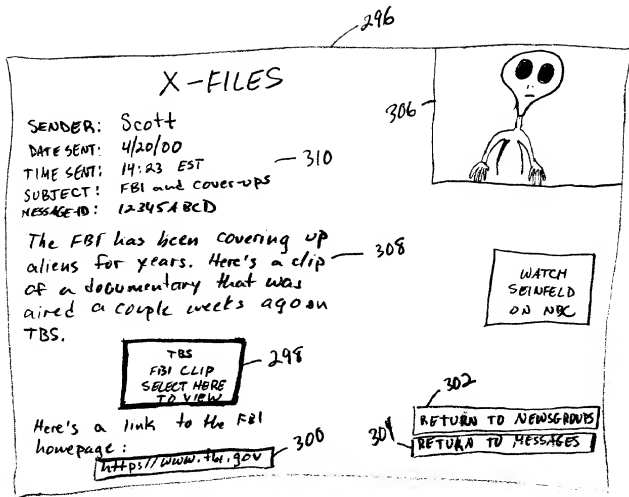 296
X-FILES
306
SENDER: Scott
DATE SENT: 4/20/00
TIME SENT: 14:23 EST
310
SUBJECT: FBI and cover-ups
MESSAGE-ID: 12345ABCD
The FBI has been covering up
aliens for years. Here's a clip
308
of a documentary that was
aired a couple weeks ago on
TBS.
WATCH
SEINFELD
ON NBC
TBS
FBI CLIP
SELECT HERE
TO VIEW
298
302
Here's a link to the FBI
homepage:
RETURN TO NEWSGROUPS
304
RETURN TO MESSAGES
https//www.fbi.gov
300